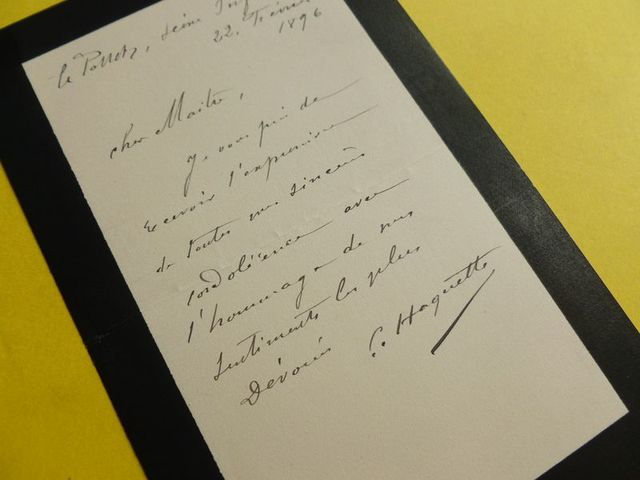 Le Pollet, Seine Inf
22. Février
1896
cher Maitre,
Je vous prie de
recevoir l'expression
de toutes mes sincères
condoléances avec
l'hommage de mes
sentiments les plus
Dévoués G. Haquette